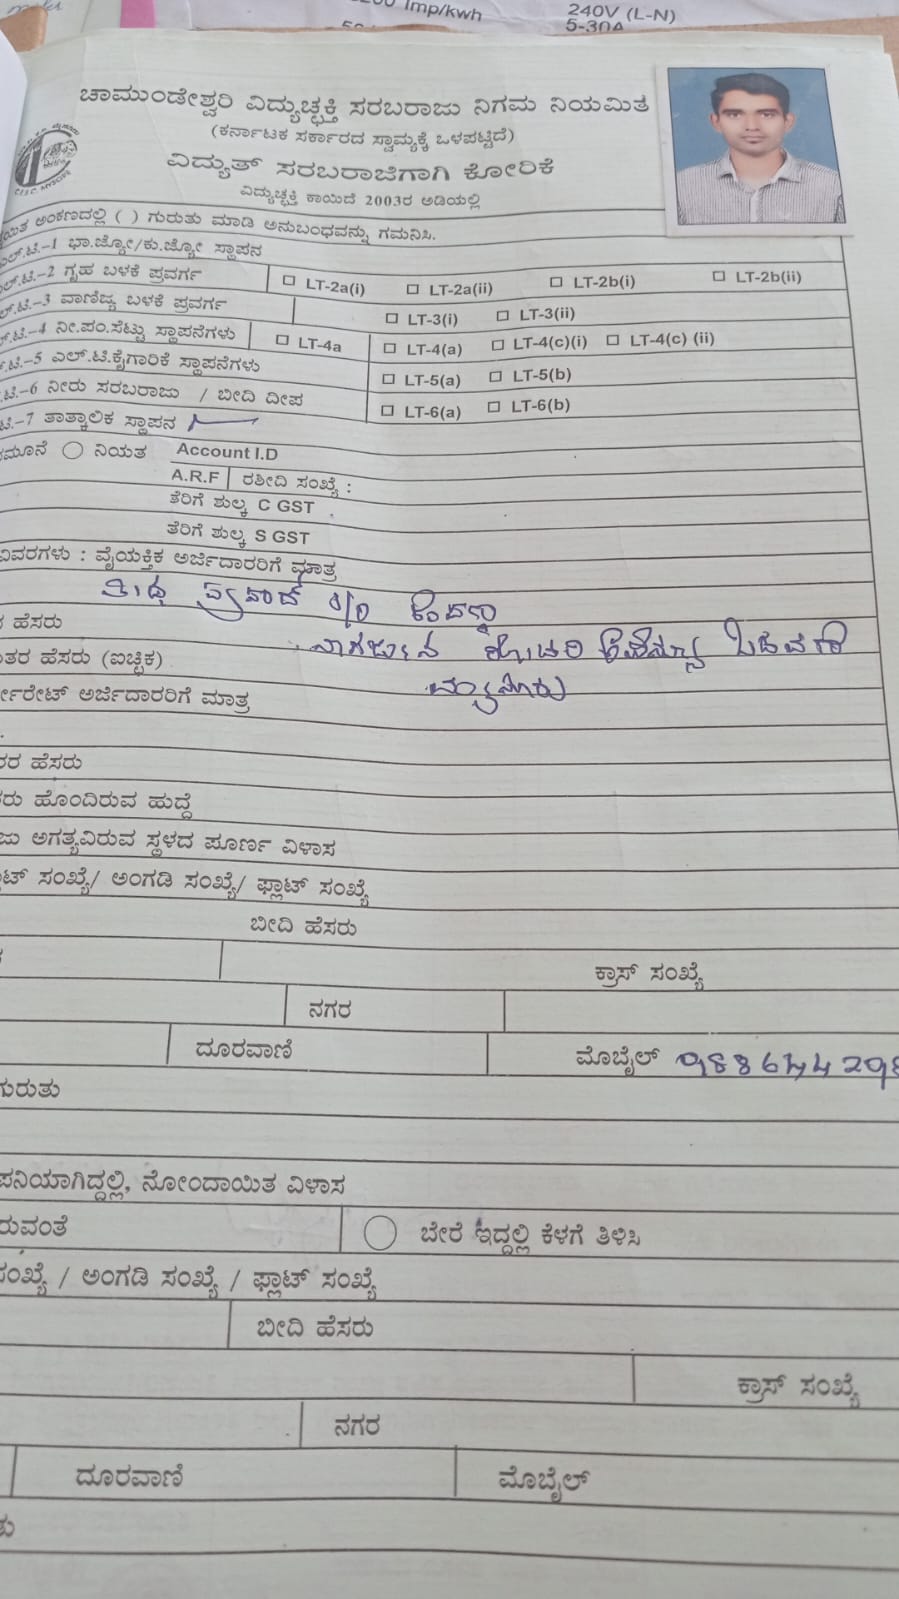 Imp/kwh
240V (L-N)
5-30A
ಚಾಮುಂಡೇಶ್ವರಿ ವಿದ್ಯುಚ್ಛಕ್ತಿ ಸರಬರಾಜು ನಿಗಮ ನಿಯಮಿತ
(ಕರ್ನಾಟಕ ಸರ್ಕಾರದ ಸ್ವಾಮ್ಯಕ್ಕೆ ಒಳಪಟ್ಟಿದೆ)
ವಿದ್ಯುತ್ ಸರಬರಾಜಿಗಾಗಿ ಕೋರಿಕೆ
ವಿದ್ಯುಚ್ಛಕ್ತಿ ಕಾಯಿದೆ 2003ರ ಅಡಿಯಲ್ಲಿ
ಅಂಕಣದಲ್ಲಿ ( ) ಗುರುತು ಮಾಡಿ ಅನುಬಂಧವನ್ನು ಗಮನಿಸಿ.
ಎಲ್.ಟಿ.-1 ಭಾ.ಜ್ಯೋ/ಕು.ಜ್ಯೋ ಸ್ಥಾಪನ
ಎಲ್.ಟಿ.-2 ಗೃಹ ಬಳಕೆ ಪ್ರವರ್ಗ LT-2a(i) LT-2a(ii) LT-2b(i) LT-2b(ii)
.ಟಿ.-3 ವಾಣಿಜ್ಯ ಬಳಕೆ ಪ್ರವರ್ಗ LT-3(i) LT-3(ii)
.ಟಿ.-4 ನೀ.ಪಂ.ಸೆಟ್ಟು ಸ್ಥಾಪನೆಗಳು LT-4a LT-4(a) LT-4(c)(i) LT-4(c) (ii)
.ಟಿ.-5 ಎಲ್.ಟಿ.ಕೈಗಾರಿಕೆ ಸ್ಥಾಪನೆಗಳು LT-5(a) LT-5(b)
.ಟಿ.-6 ನೀರು ಸರಬರಾಜು / ಬೀದಿ ದೀಪ LT-6(a) LT-6(b)
ಟಿ.-7 ತಾತ್ಕಾಲಿಕ ಸ್ಥಾಪನ
ನಿಯತ Account I.D
A.R.F ರಶೀದಿ ಸಂಖ್ಯೆ :
ತೆರಿಗೆ ಶುಲ್ಕ C GST
ತೆರಿಗೆ ಶುಲ್ಕ S GST
ವಿವರಗಳು : ವೈಯಕ್ತಿಕ ಅರ್ಜಿದಾರರಿಗೆ ಮಾತ್ರ
S/O
ಹೆಸರು
ತರ ಹೆಸರು (ಐಚ್ಛಿಕ)
ರ್ಪೊರೇಟ್ ಅರ್ಜಿದಾರರಿಗೆ ಮಾತ್ರ
ರರ ಹೆಸರು
ರು ಹೊಂದಿರುವ ಹುದ್ದೆ
ಜು ಅಗತ್ಯವಿರುವ ಸ್ಥಳದ ಪೂರ್ಣ ವಿಳಾಸ
ಟ್ ಸಂಖ್ಯೆ/ ಅಂಗಡಿ ಸಂಖ್ಯೆ/ ಫ್ಲಾಟ್ ಸಂಖ್ಯೆ
ಬೀದಿ ಹೆಸರು
ಕ್ರಾಸ್ ಸಂಖ್ಯೆ
ನಗರ
ದೂರವಾಣಿ ಮೊಬೈಲ್
ಗುರುತು
ಪನಿಯಾಗಿದ್ದಲ್ಲಿ, ನೋಂದಾಯಿತ ವಿಳಾಸ
ರುವಂತೆ ಬೇರೆ ಇದ್ದಲ್ಲಿ ಕೆಳಗೆ ತಿಳಿಸಿ
ಸಂಖ್ಯೆ / ಅಂಗಡಿ ಸಂಖ್ಯೆ / ಫ್ಲಾಟ್ ಸಂಖ್ಯೆ
ಬೀದಿ ಹೆಸರು
ಕ್ರಾಸ್ ಸಂಖ್ಯೆ
ನಗರ
ದೂರವಾಣಿ ಮೊಬೈಲ್